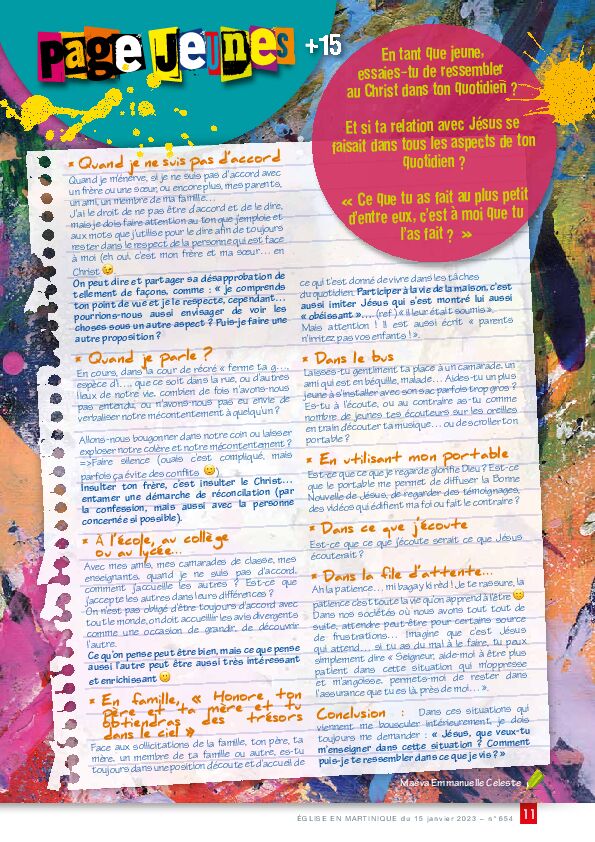 Page Jeunes +15
En tant que jeune,
essaies-tu de ressembler
au Christ dans ton quotidien ?
Et si ta relation avec Jésus se
faisait dans tous les aspects de ton
quotidien ?
« Ce que tu as fait au plus petit
d'entre eux, c'est à moi que tu
l'as fait ? »
Quand je ne suis pas d'accord
Quand je m'énerve, si je ne suis pas d'accord avec
un frère ou une sœur, ou encore plus, mes parents,
un ami, un membre de ma famille…
J'ai le droit de ne pas être d'accord et de le dire,
mais je dois faire attention au ton que j'emploie et
aux mots que j'utilise pour le dire afin de toujours
rester dans le respect de la personne qui est face
à moi (eh oui, c'est mon frère et ma sœur… en
Christ
On peut dire et partager sa désapprobation de
tellement de façons, comme : « je comprends
ton point de vue et je le respecte, cependant…
pourrions-nous aussi envisager de voir les
choses sous un autre aspect ? Puis-je faire une
autre proposition ?
Quand je parle ?
En cours, dans la cour de récré « ferme ta g…,
espèce d'i…. que ce soit dans la rue, ou d'autres
lieux de notre vie, combien de fois n'avons-nous
pas entendu, ou n'avons-nous pas eu envie de
verbaliser notre mécontentement à quelqu'un ?
Allons-nous bougonner dans notre coin ou laisser
exploser notre colère et notre mécontentement ?
=>Faire silence (ouais c'est compliqué, mais
parfois ça évite des conflits
Insulter ton frère, c'est insulter le Christ…
entamer une démarche de réconciliation (par
la confession, mais aussi avec la personne
concernée si possible).
À l'école, au collège
ou au lycée…
Avec mes amis, mes camarades de classe, mes
enseignants, quand je ne suis pas d'accord,
comment j'accueille les autres ? Est-ce que
j'accepte les autres dans leurs différences ?
On n'est pas obligé d'être toujours d'accord avec
tout le monde, on doit accueillir les avis divergents
comme une occasion de grandir, de découvrir
l'autre.
Ce qu'on pense peut être bien, mais ce que pense
aussi l'autre peut être aussi très intéressant
et enrichissant
En famille, « Honore ton
père et ta mère et tu
obtiendras des trésors
dans le ciel »
Face aux sollicitations de la famille, ton père, ta
mère, un membre de ta famille ou autre, es-tu
toujours dans une position d'écoute et d'accueil de
ce qui t'est donné de vivre dans les tâches
du quotidien. Participer à la vie de la maison, c'est
aussi imiter Jésus qui s'est montré lui aussi
« obéissant »…. (ref.) « Il leur était soumis ».
Mais attention ! Il est aussi écrit « parents
n'irritez pas vos enfants! ».
Dans le bus
Laisses-tu gentiment ta place à un camarade, un
ami qui est en béquille, malade… Aides-tu un plus
jeune à s'installer avec son sac parfois trop gros ?
Es-tu à l'écoute, ou au contraire as-tu comme
nombre de jeunes tes écouteurs sur les oreilles
en train d'écouter ta musique… ou de scroller ton
portable ?
En utilisant mon portable
Est-ce que ce que je regarde glorifie Dieu ? Est-ce
que le portable me permet de diffuser la Bonne
Nouvelle de Jésus, de regarder des témoignages,
des vidéos qui édifient ma foi ou fait le contraire ?
Dans ce que j'écoute
Est-ce que ce que j'écoute serait ce que Jésus
écouterait ?
Dans la file d'attente…
Ah la patience… mi bagay ki rèd ! Je te rassure, la
patience c'est toute la vie qu'on apprend à l'être
Dans nos sociétés où nous avons tout tout de
suite, attendre peut-être pour certains source
de frustrations… Imagine que c'est Jésus
qui attend… si tu as du mal à le faire, tu peux
simplement dire « Seigneur, aide-moi à être plus
patient dans cette situation qui m'oppresse
et m'angoisse, permets-moi de rester dans
l'assurance que tu es là, près de moi… ».
Conclusion : Dans ces situations qui
viennent me bousculer intérieurement, je dois
toujours me demander : « Jésus, que veux-tu
m'enseigner dans cette situation ? Comment
puis-je te ressembler dans ce que je vis ? »
Maéva Emmanuelle Celeste
ÉGLISE EN MARTINIQUE du 15 janvier 2023 – n°654 11